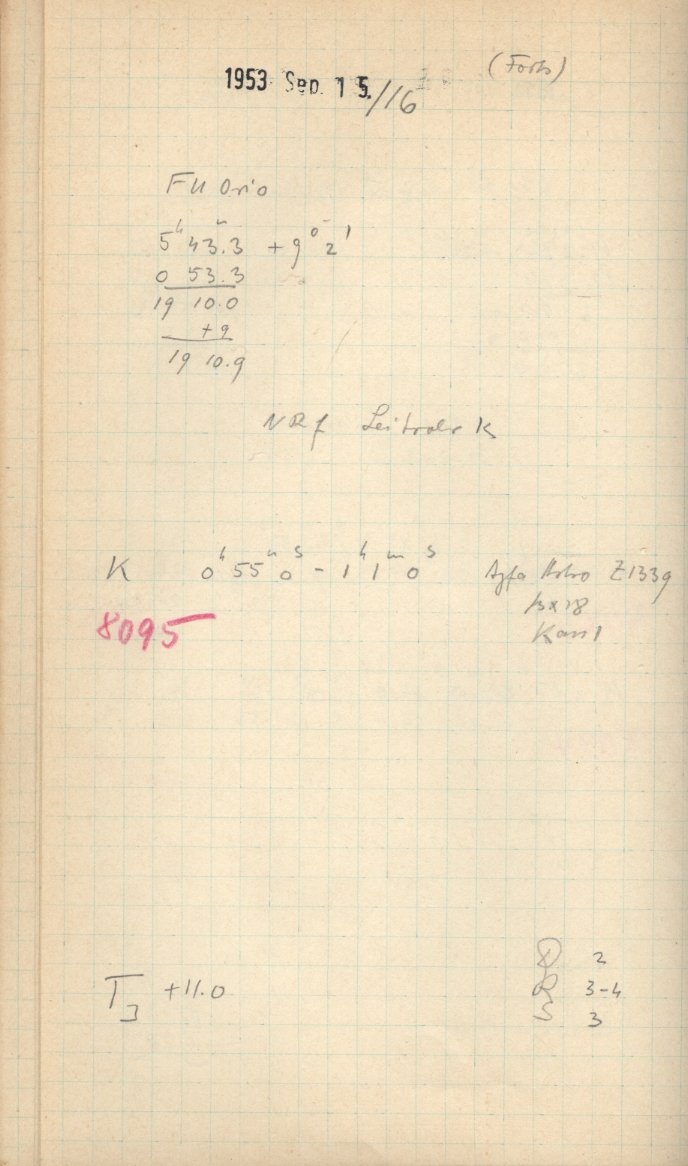 1953 Sep. 15./16 (Forts)
FU Orio
5ʰ 43ᵐ.3 + 9° 2'
0 53.3
19 10.0
+9
19 10.9
NRf Leitrohr K
K 0ʰ 55ᵐ 0ˢ - 1ʰ 1ᵐ 0ˢ Agfa Astro Z1339
8095 13x18
Kass 1
D 2
T₃ +11.0 R 3-4
S 3